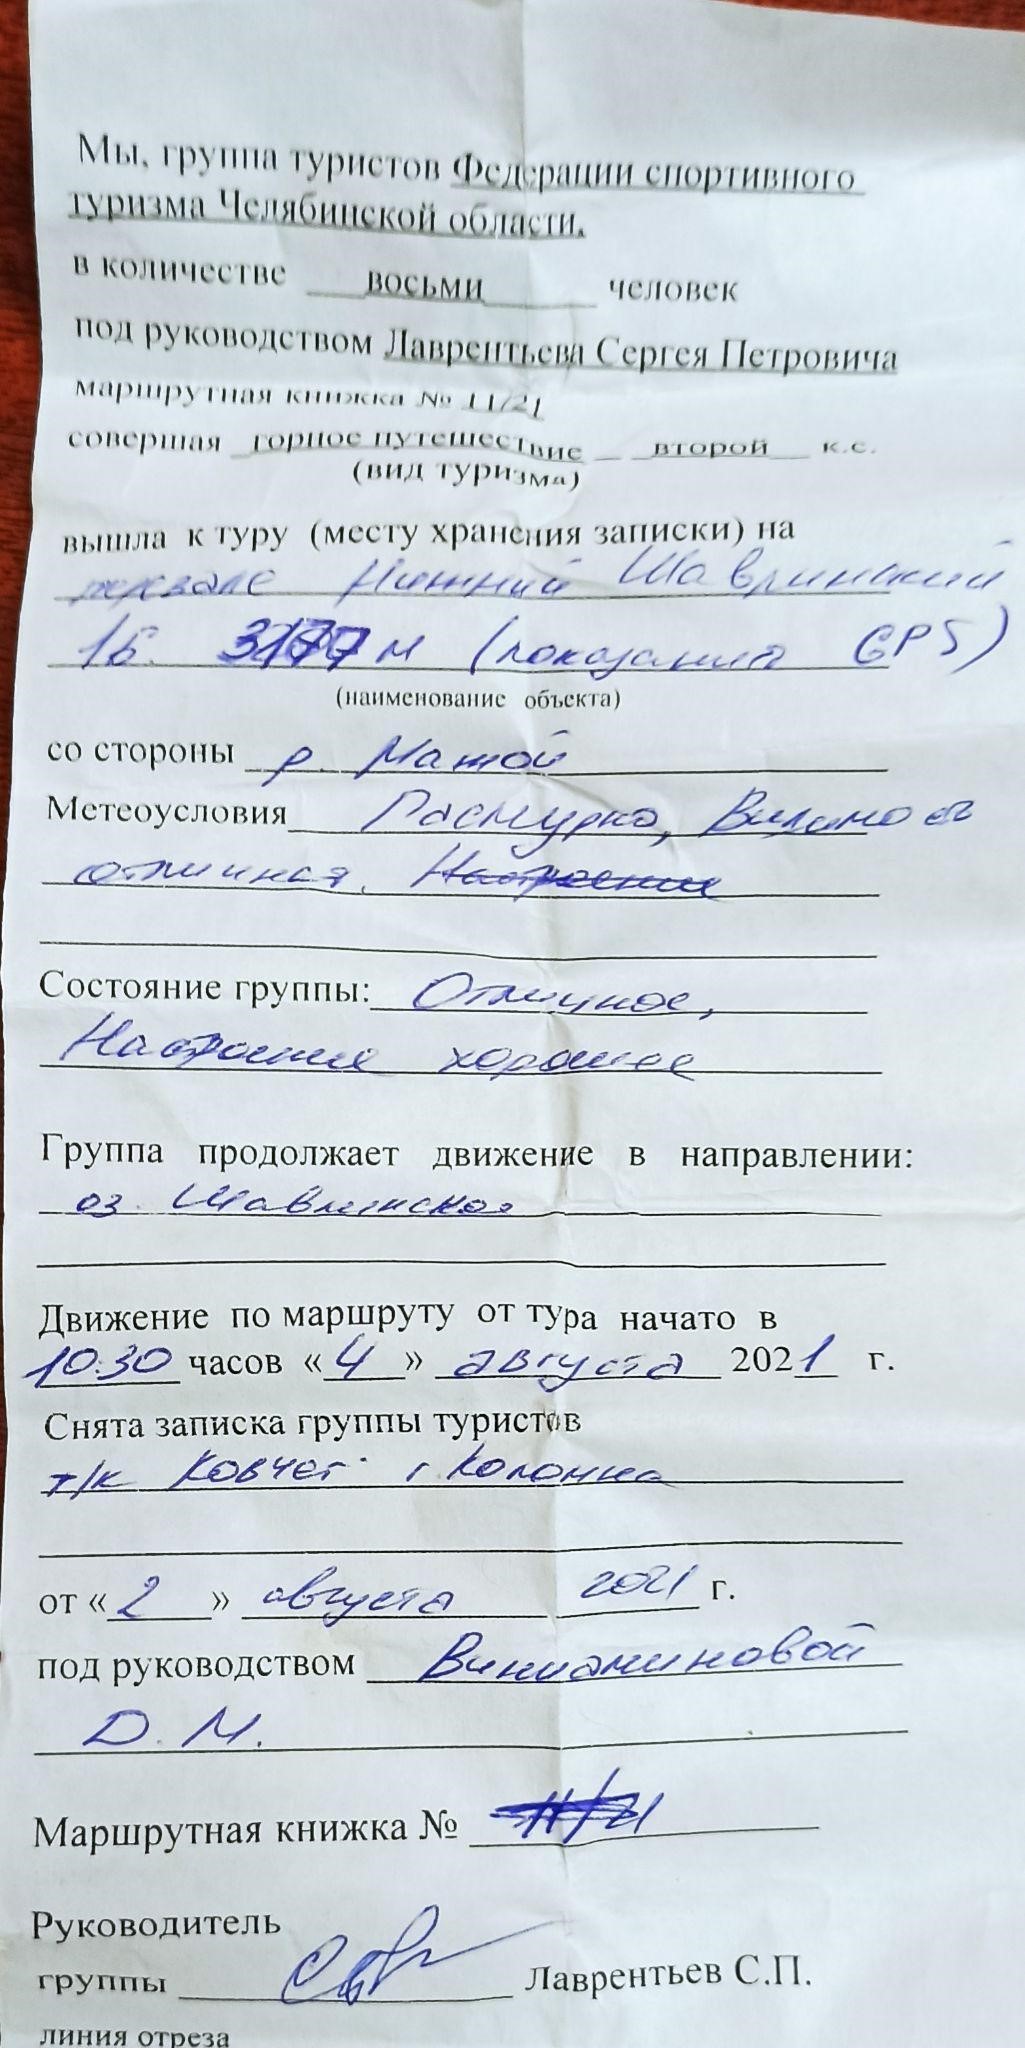 Мы, группа туристов Федерации спортивного
туризма Челябинской области,
в количестве восьми человек
под руководством Лаврентьева Сергея Петровича
маршрутная книжка № 11/21
совершая горное путешествие второй к.с.
(вид туризма)
вышла к туру (месту хранения записки) на
перевале Нижний Шавлинский
1Б. 3177 м (показания GPS)
(наименование объекта)
со стороны р. Мажой
Метеоусловия Пасмурно, Видимость
отличная.
Состояние группы: Отличное,
Настроение хорошее
Группа продолжает движение в направлении:
оз. Шавлинское
Движение по маршруту от тура начато в
10:30 часов «4» августа 2021 г.
Снята записка группы туристов
т/к Ковчег г Коломна
от «2» августа 2021 г.
под руководством Виниаминовой
Д. М.
Маршрутная книжка №
Руководитель
группы Лаврентьев С.П.
линия отреза